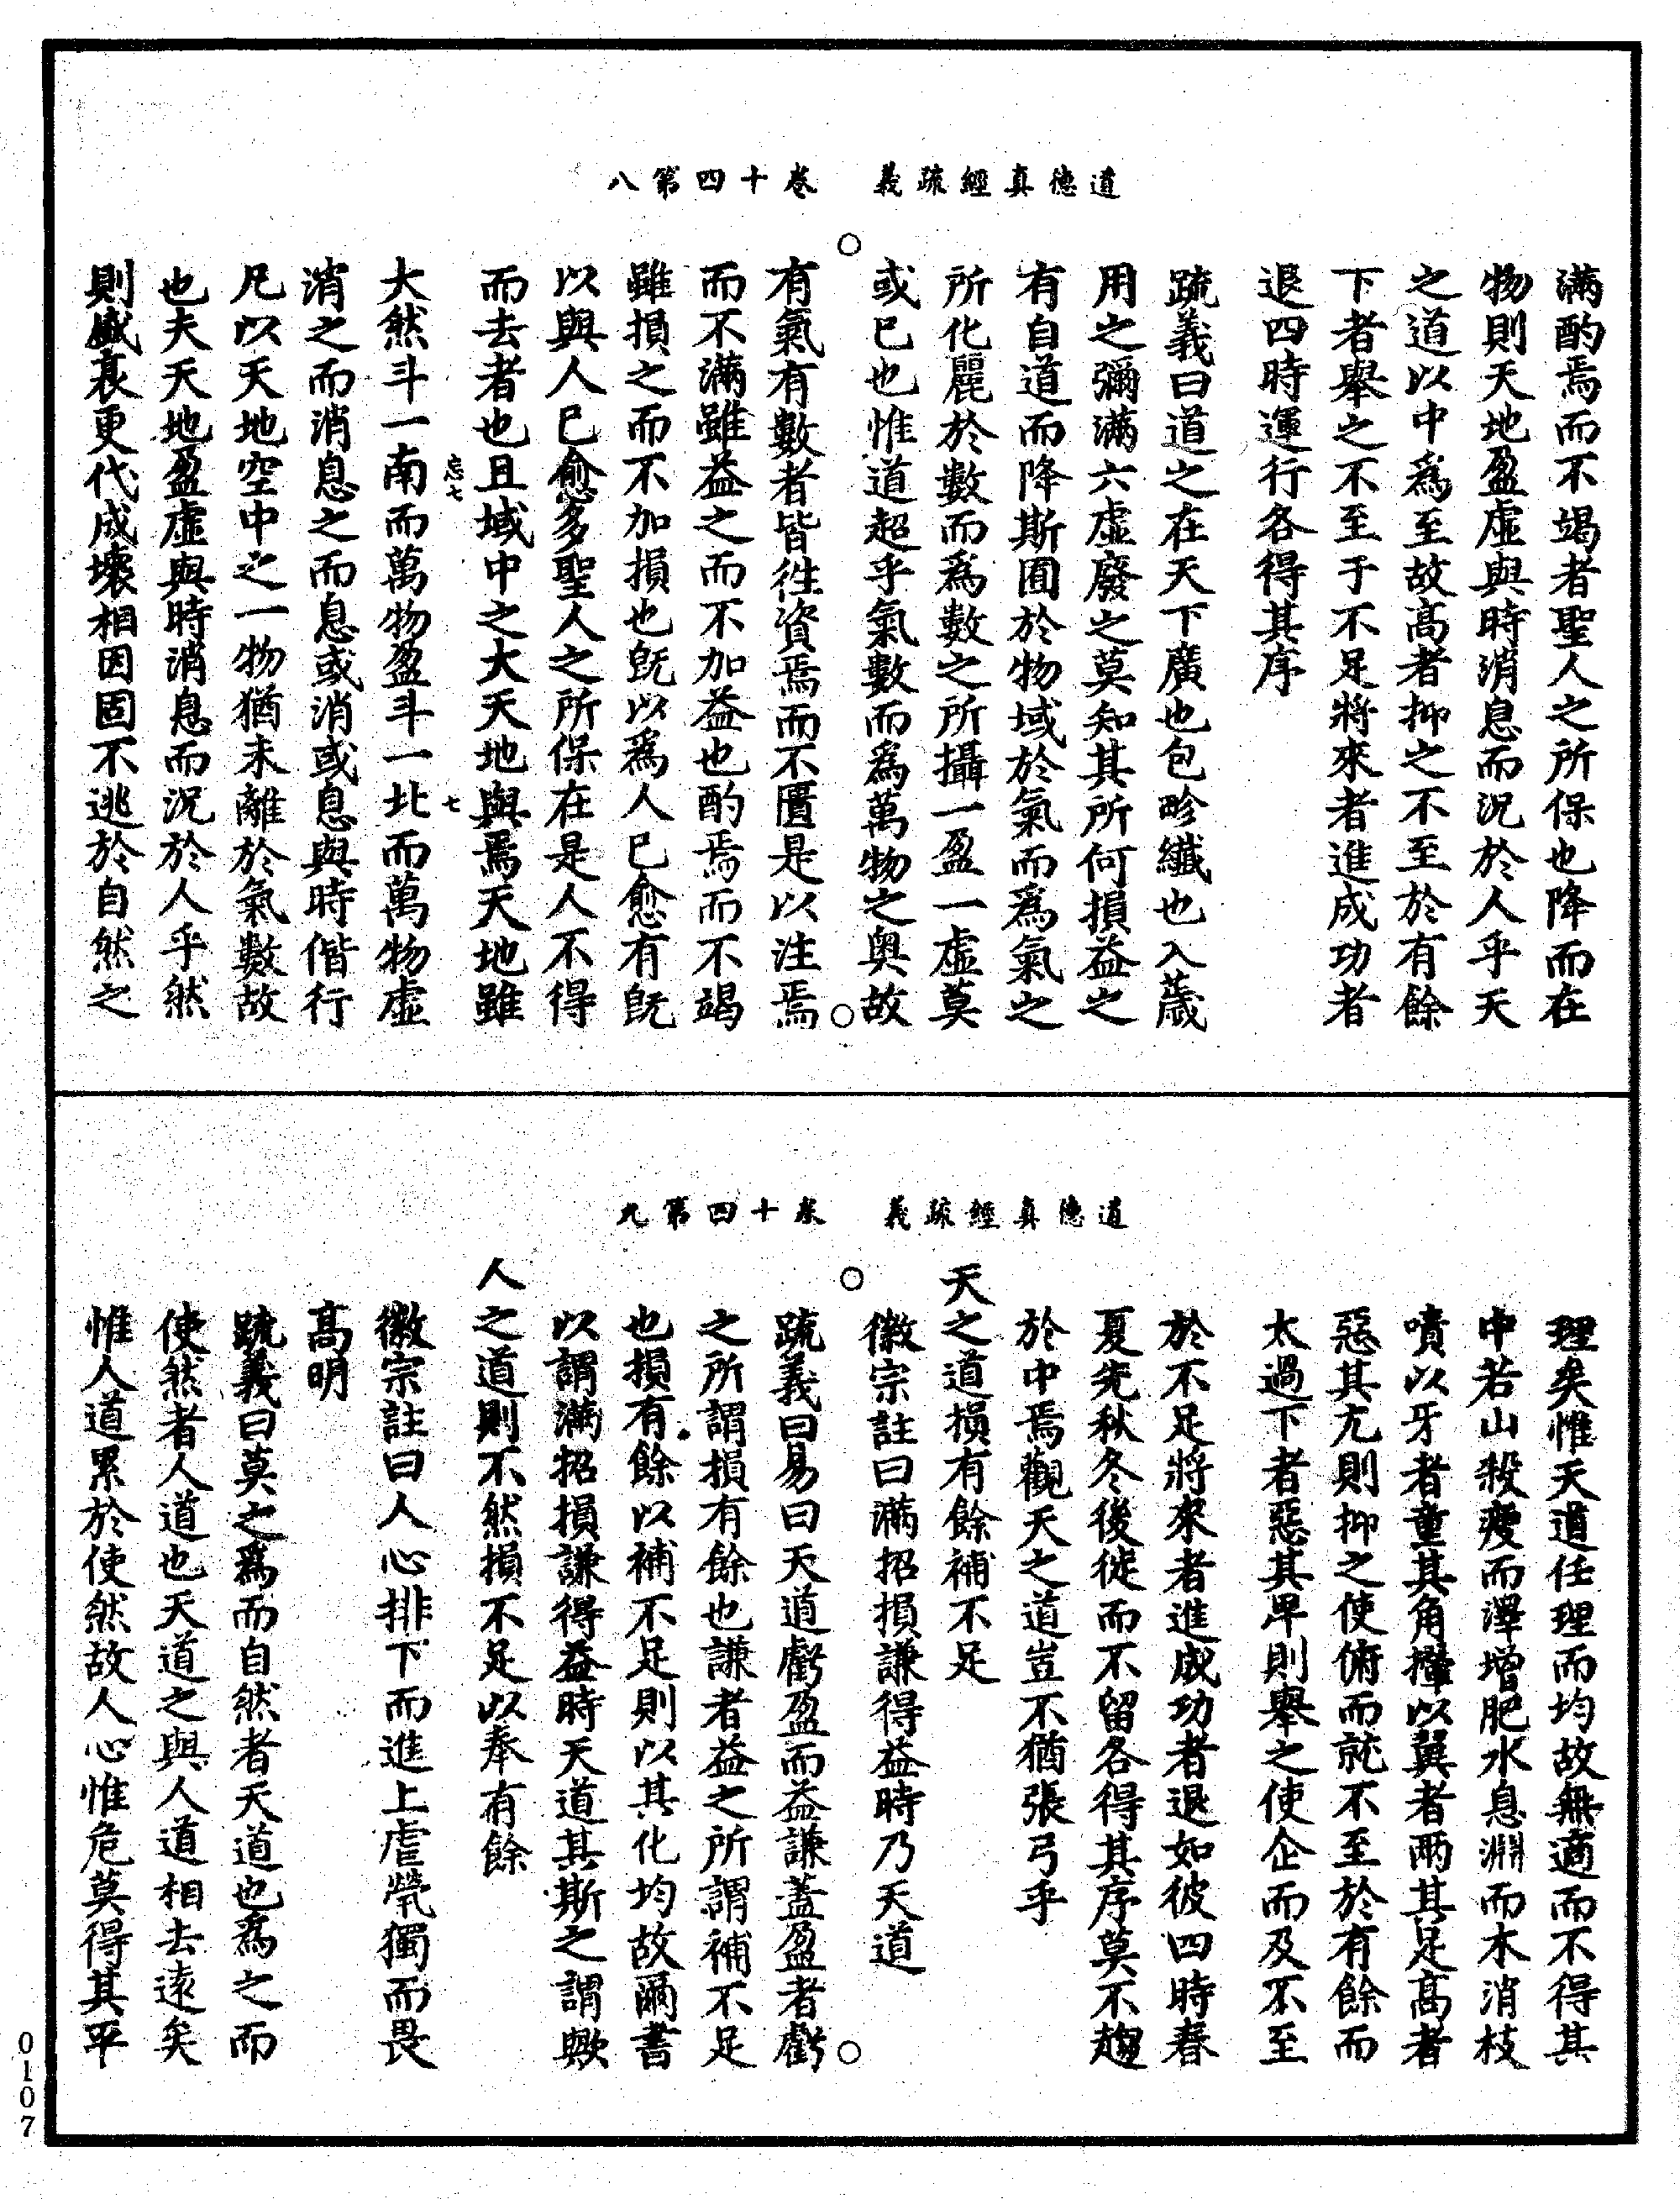 道德真經疏義　卷十四第八
滿酌焉而不竭者聖人之所保也降而在
物則天地盈虛與時消息而況於人乎天
之道以中爲至故高者抑之不至於有餘
下者舉之不至于不足將來者進成功者
退四時運行各得其序
疏義曰道之在天下廣也包畛纖也入薉
用之彌滿六虛廢之莫知其所何損益之
有自道而降斯囿於物域於氣而爲氣之
所化麗於數而爲數之所攝一盈一虛莫
或已也惟道超乎氣數而爲萬物之奧故
有氣有數者皆徃資焉而不匱是以注焉
而不滿雖益之而不加益也酌焉而不竭
雖損之而不加損也旣以爲人已愈有旣
以與人已愈多聖人之所保在是人不得
而去者也且域中之大天地與焉天地雖
忘七　七
大然斗一南而萬物盈斗一北而萬物虛
消之而消息之而息或消或息與時偕行
凡以天地空中之一物猶未離於氣數故
也夫天地盈虛與時消息而況於人乎然
則盛衰更代成壞相因固不逃於自然之
道德真經疏義　卷十四第九
理矣惟天道任理而均故無適而不得其
中若山殺瘦而澤增肥水息淵而木消枝
嘖以牙者童其角攡以翼者兩其足高者
惡其亢則抑之使俯而就不至於有餘而
太過下者惡其卑則舉之使企而及不至
於不足將來者進成功者退如彼四時春
夏先秋冬後徙而不留各得其序莫不趨
於中焉觀天之道豈不猶張弓乎
天之道損有餘補不足
徽宗註曰滿招損謙得益時乃天道
疏義曰易曰天道虧盈而益謙蓋盈者虧
之所謂損有餘也謙者益之所謂補不足
也損有餘以補不足則以其化均故爾書
以謂滿招損謙得益時天道其斯之謂歟
人之道則不然損不足以奉有餘
徽宗註曰人心排下而進上虐煢獨而畏
高明
疏義曰莫之爲而自然者天道也爲之而
使然者人道也天道之與人道相去遠矣
惟人道累於使然故人心惟危莫得其平
0107